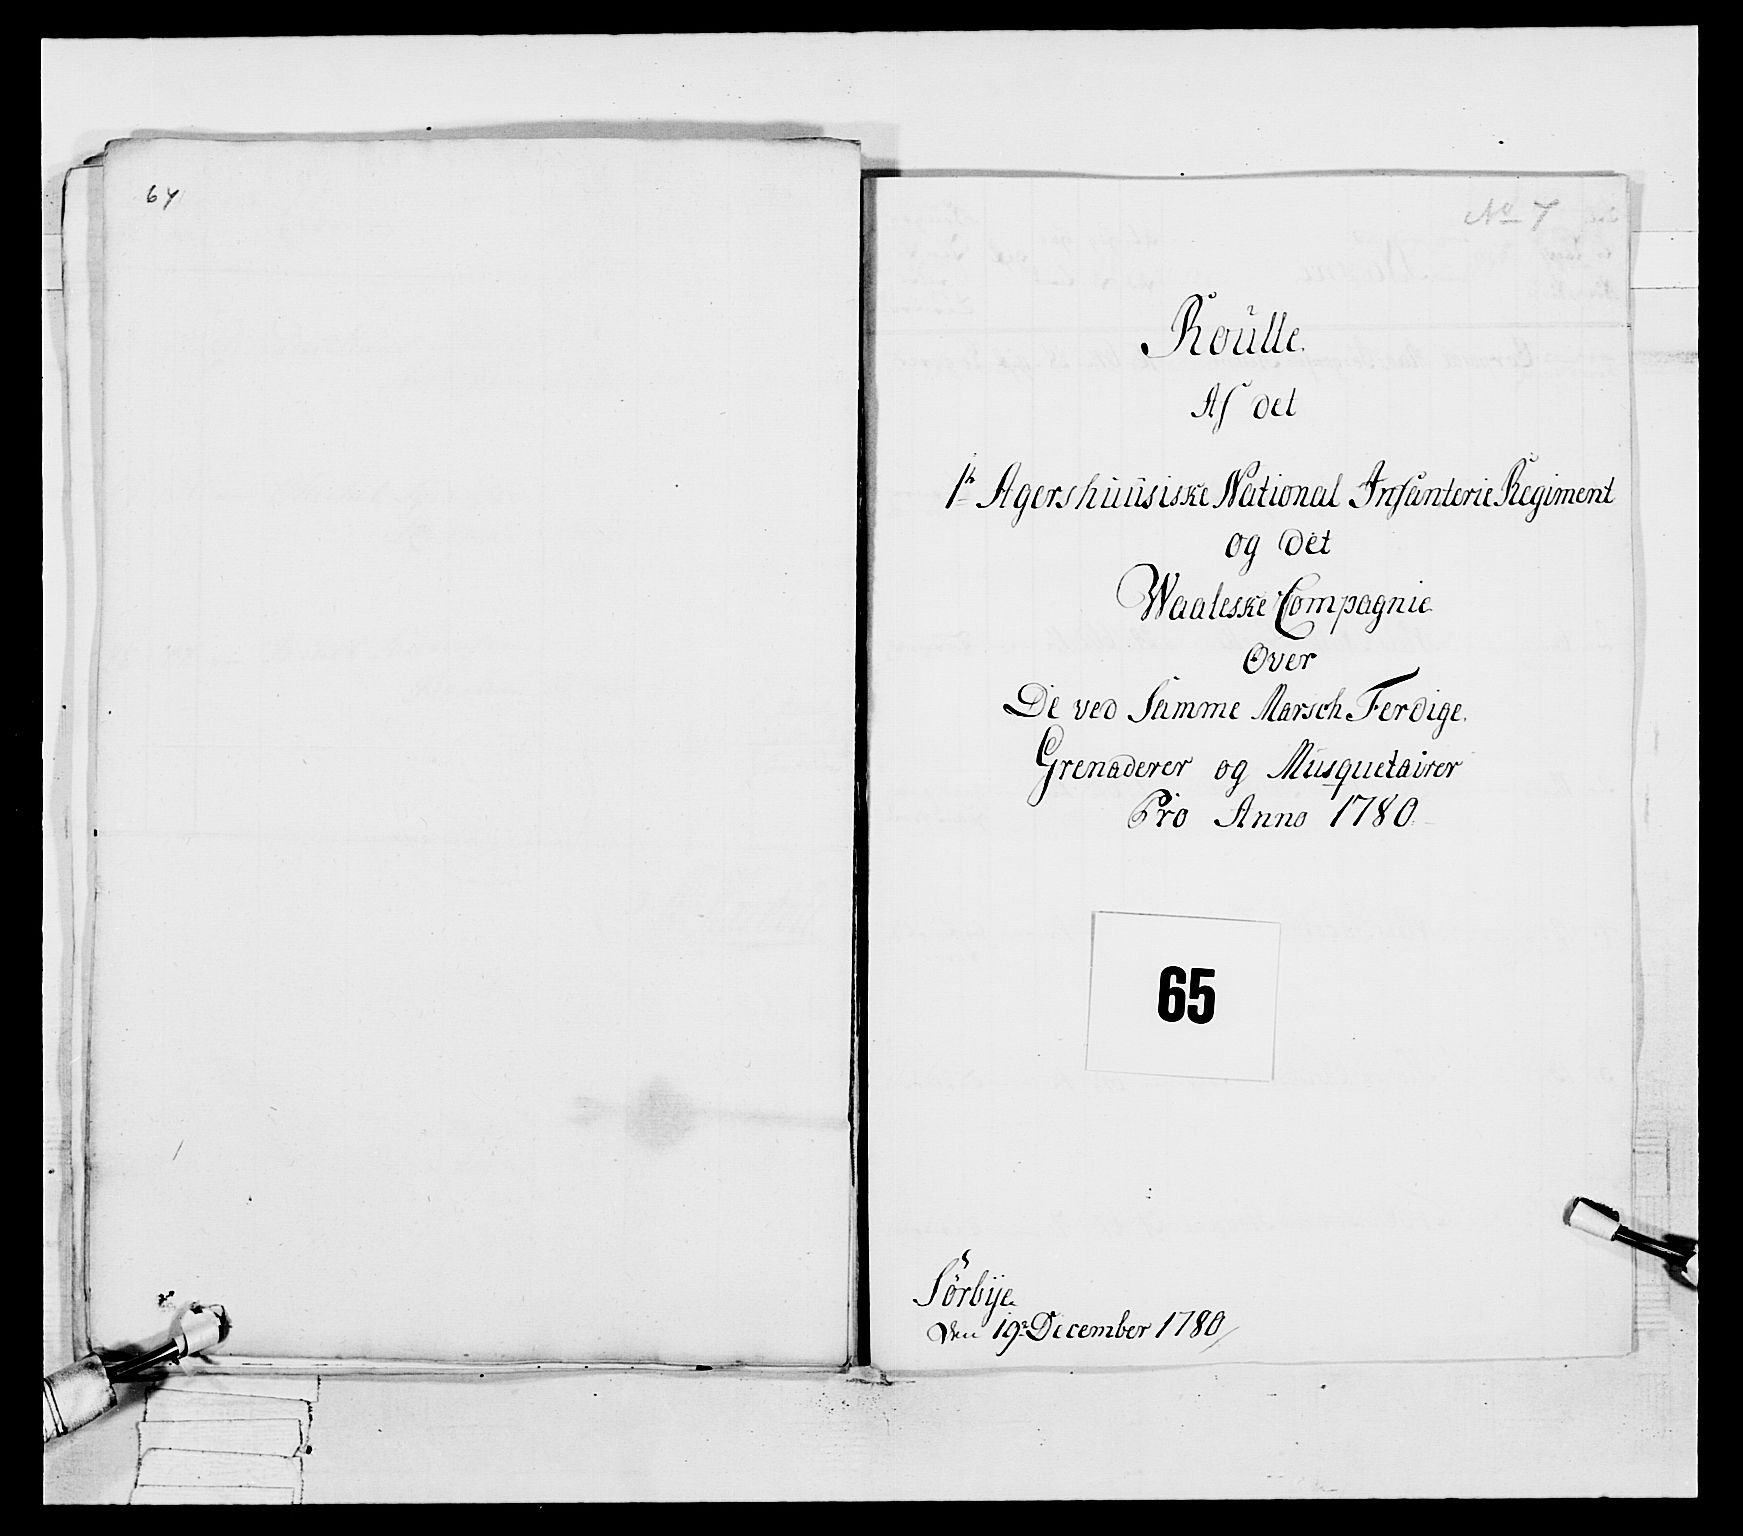 64
No 7
Roülle.
Af det
1te Agershüüsiske National Infanterie Regiment
og det
Waaleske Compagnie
Over
De ved Samme Marsch Ferdige.
Grenaderer og Musquetairer
Pro Anno 1780.
65
Sørbije
Den 19de December 1780